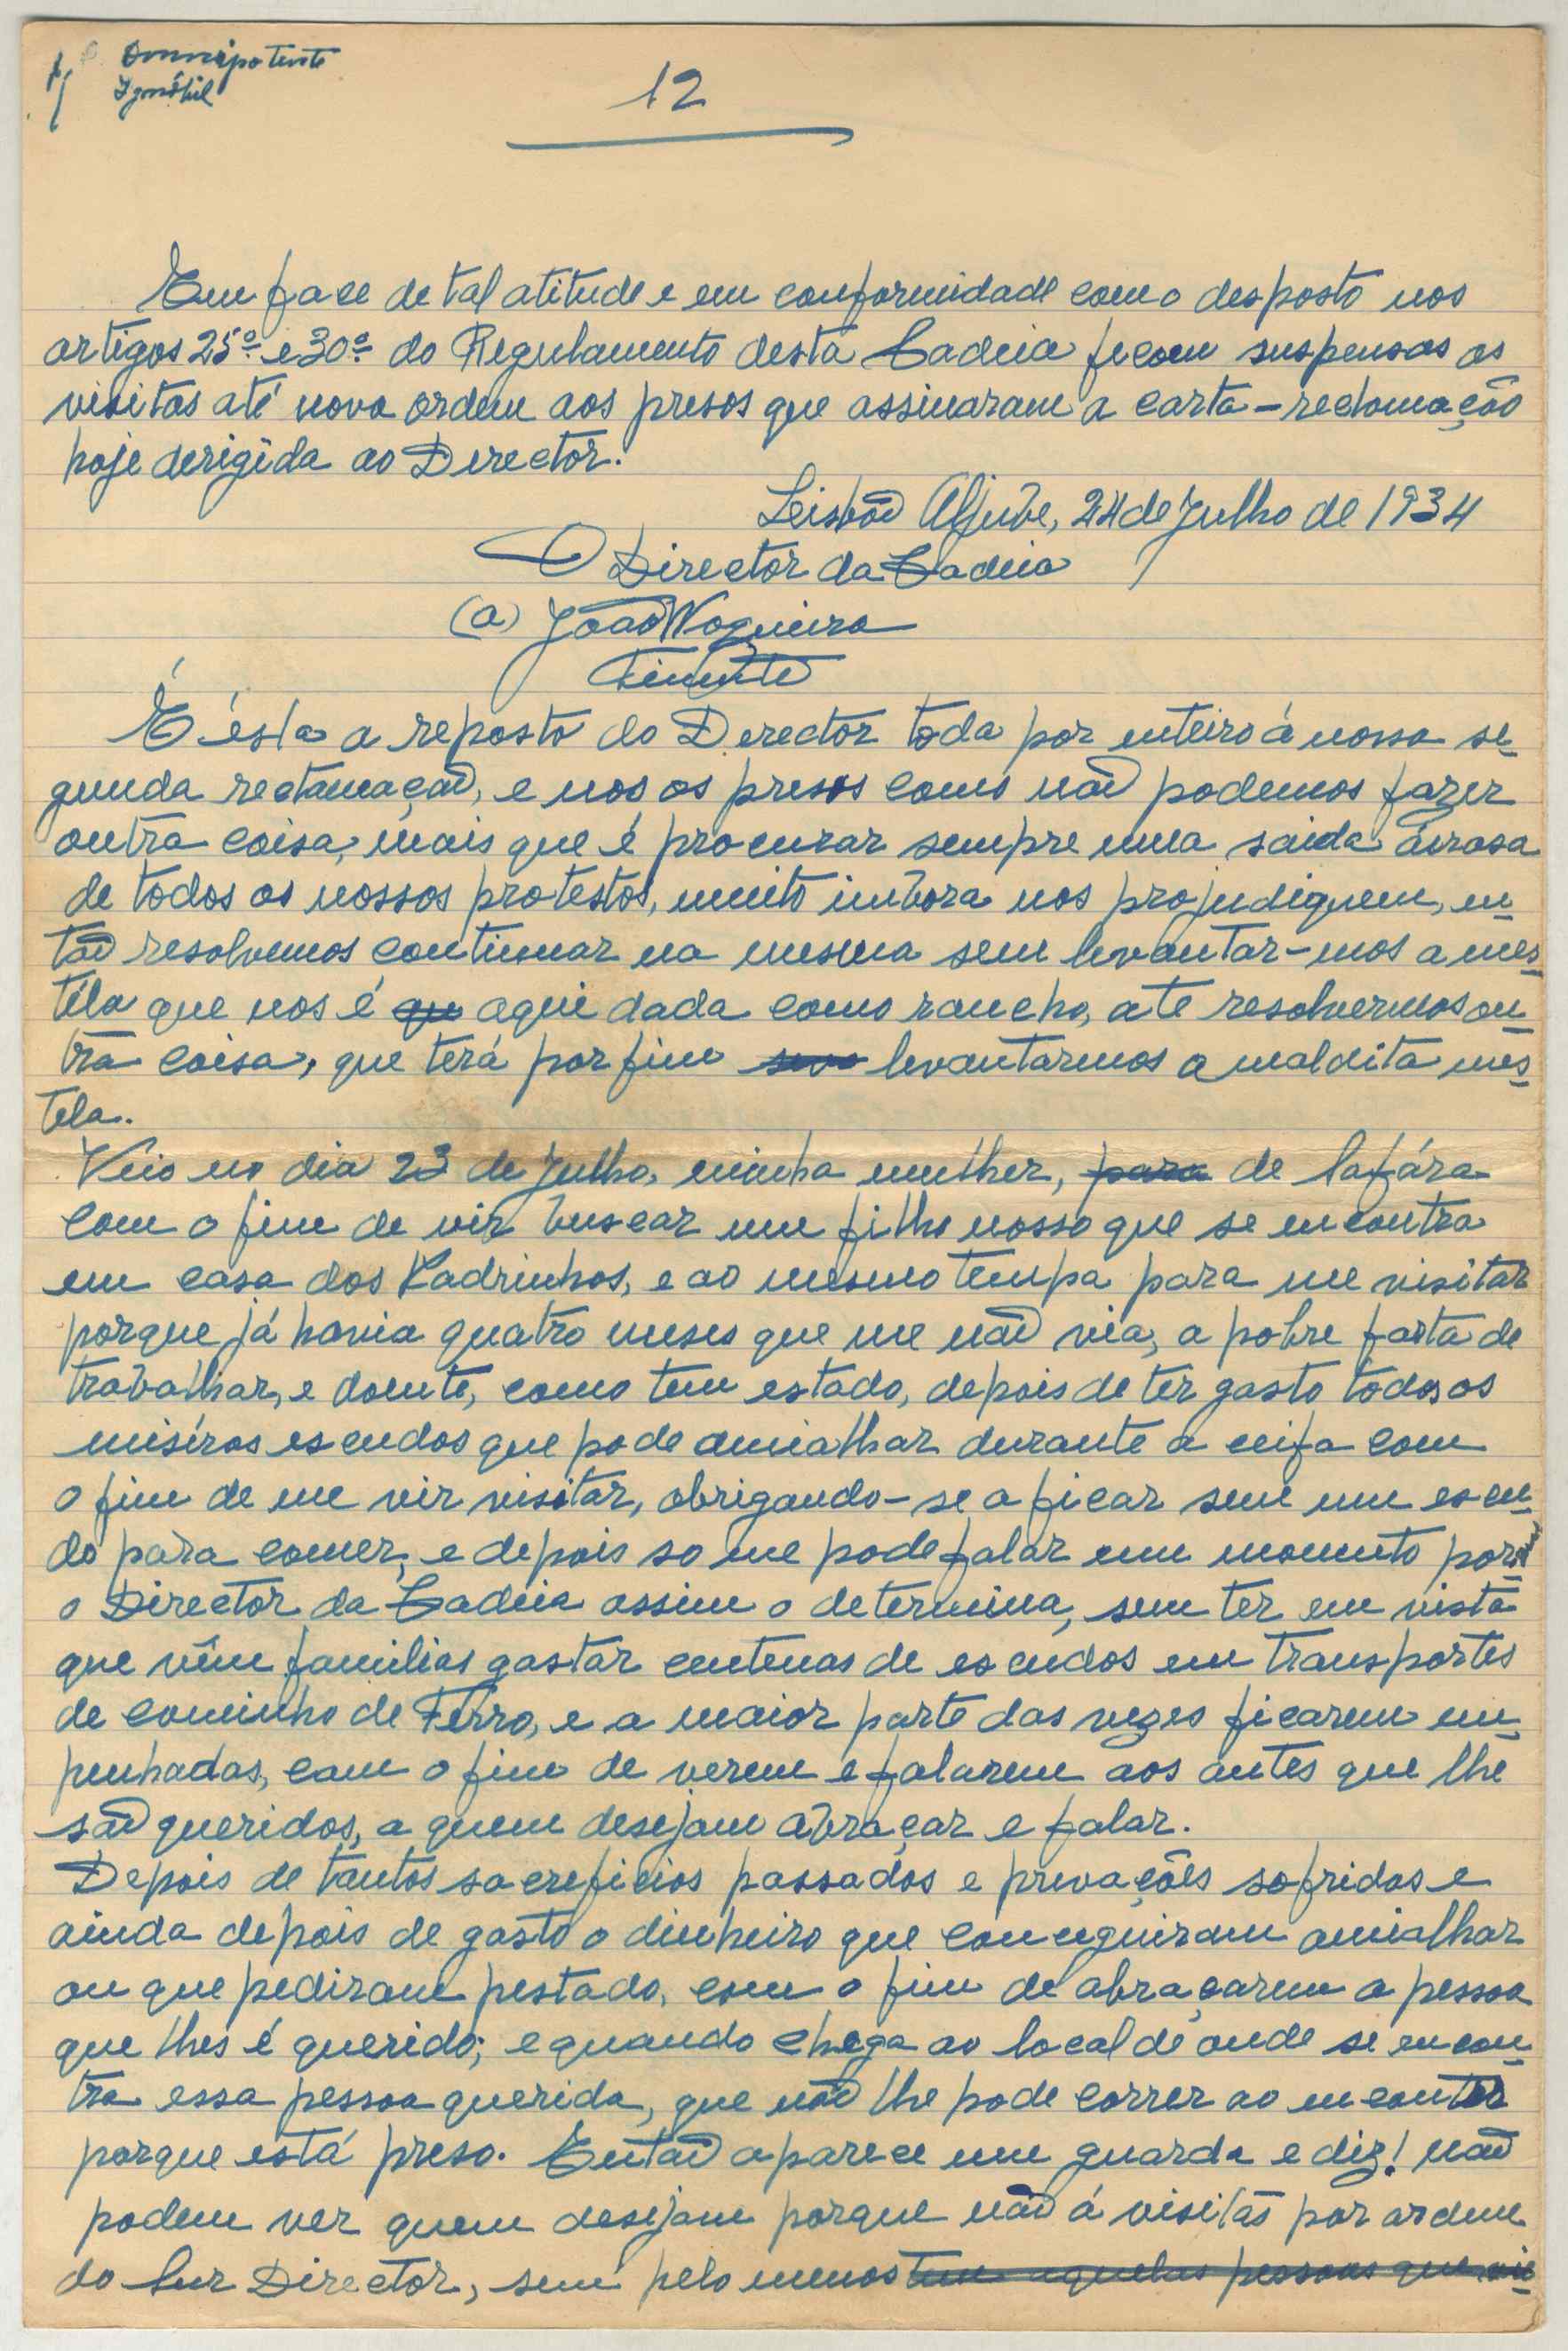 Omnipotente
Ignóbil
12
Em face de tal atitude e em conformidade com o desposto nos
artigos 25º e 30º do Regulamento desta Cadeia ficam suspensas as
visitas até nova ordem aos presos que assinaram a carta-reclamação
hoje derigida ao Director.
Leisbôa Aljube, 24 de Julho de 1934
O Director da Cadeia
(a) João Nogueira
Tenente
É ésta a reposta do Derector toda por inteiro á nossa se-
gunda reclamação, e nos os presos como não podemos fazer
outra coisa, mais que é procurar sempre uma saida airosa
de todos os nossos protestos, muito imbora nos projudiquem, en-
tão resolvemos continuar na mesma sem levantar-mos a mis-
téla que nos é qu aqui dada como rancho, ate resolvermos ou-
tra coisa, que terá por fim sero levantarmos a maldita mis-
tela.
Veio no dia 23 de Julho, minha mulher, para de Safára
com o fim de vir buscar um filho nosso que se encontra
em casa dos Padrinhos, e ao mesmo tempa para me visitar
porque já havia quatro meses que me não via, a pobre farta de
trabalhar, e doente, como tem estado, depois de ter gasto todos os
miséros escudos que pode amialhar durante a ceifa com
o fim de me vir visitar, obrigando-se a ficar sem um escu-
do para comer, e depois so me pode falar um momento porque
o Director da Cadeia assim o determina, sem ter em vista
que vêm familias gastar centenas de escudos em transportes
de cominho de Ferro, e a maior parte das vezes ficarem em-
penhadas, com o fim de verem e falarem aos antes que lhe
são queridos, a quem desejam abraçar e falar.
Depois de tantos sacreficios passados e privações sofridas e
ainda depois de gasto o dinheiro que conceguiram amialhar
ou que pediram pestado, com o fim de abraçarem a pessoa
que lhes é querido; e quando chega ao local de onde se encon-
tra essa pessoa querida, que não lhe pode correr ao encontro
porque está preso. Então aparece um guarda e diz! não
podem ver quem desejam porque não á visitas por ordem
do Snr Director, sem pelo menos tem aquelas pessoas que vie-